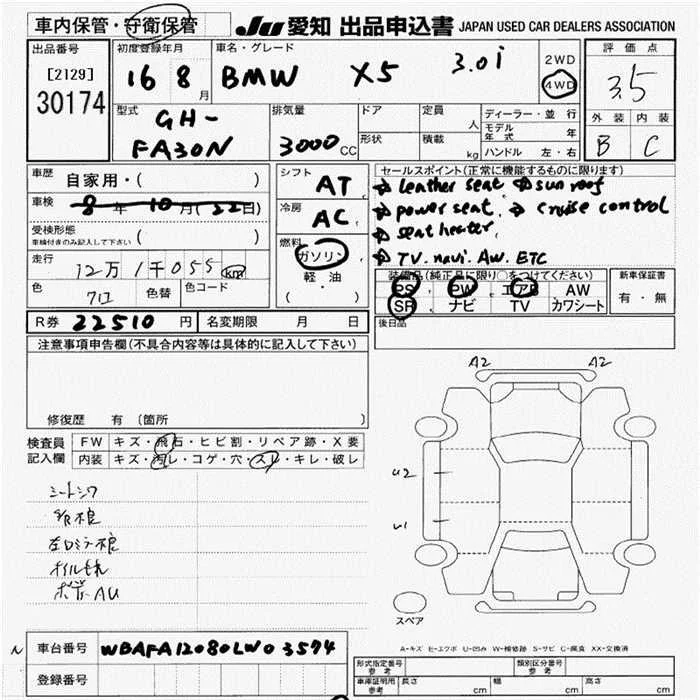 車内保管・守衛保管
JU 愛知 出品申込書 JAPAN USED CAR DEALERS ASSOCIATION
出品番号 [2129] 30174
初度登録年月 16 8月
車名・グレード BMW X5 3.0i
2WD 4WD
評価点 3.5
型式 GH-FA30N
排気量 3000CC
ドア 形状
定員 人 積載 kg
ディーラー・並行
モデル年式 年
ハンドル 左・右
外装 内装
B C
車歴 自家用・( )
車検 8年10月(22日)
受検形態 車検付きのみ記入して下さい ( )
走行 12万1千055km
色 色替 色コード
シフト AT
冷房 AC
燃料 ガソリン 軽油 ( ・ )
セールスポイント(正常に機能するものに限ります)
→ leather seat → sun roof
→ power seat. → cruise control
→ seat heater.
→ TV. navi. AW. ETC
装備品(純正品に限り○をつけてください)
PS PW エアB AW
SR ナビ TV カワシート
新車保証書 有・無
R券 22510円 名変期限 月 日
後日品
注意事項申告欄(不具合内容等は具体的に記入して下さい)
修復歴 有 (箇所 )
検査員記入欄
FW キズ・飛石・ヒビ割・リペア跡・X要
内装 キズ・汚レ・コゲ・穴・スレ・キレ・破レ
シートシワ
オイルモレ
A2 A2
U2
U1
スペア
A-キズ E-エクボ U-凹み W-補修跡 S-サビ C-腐食 XX-交換済
車台番号 WBAFA12080LW03574
登録番号
型式指定番号 参考 類別区分番号 参考
車庫証明用 参考 長さ cm 幅 cm 高さ cm